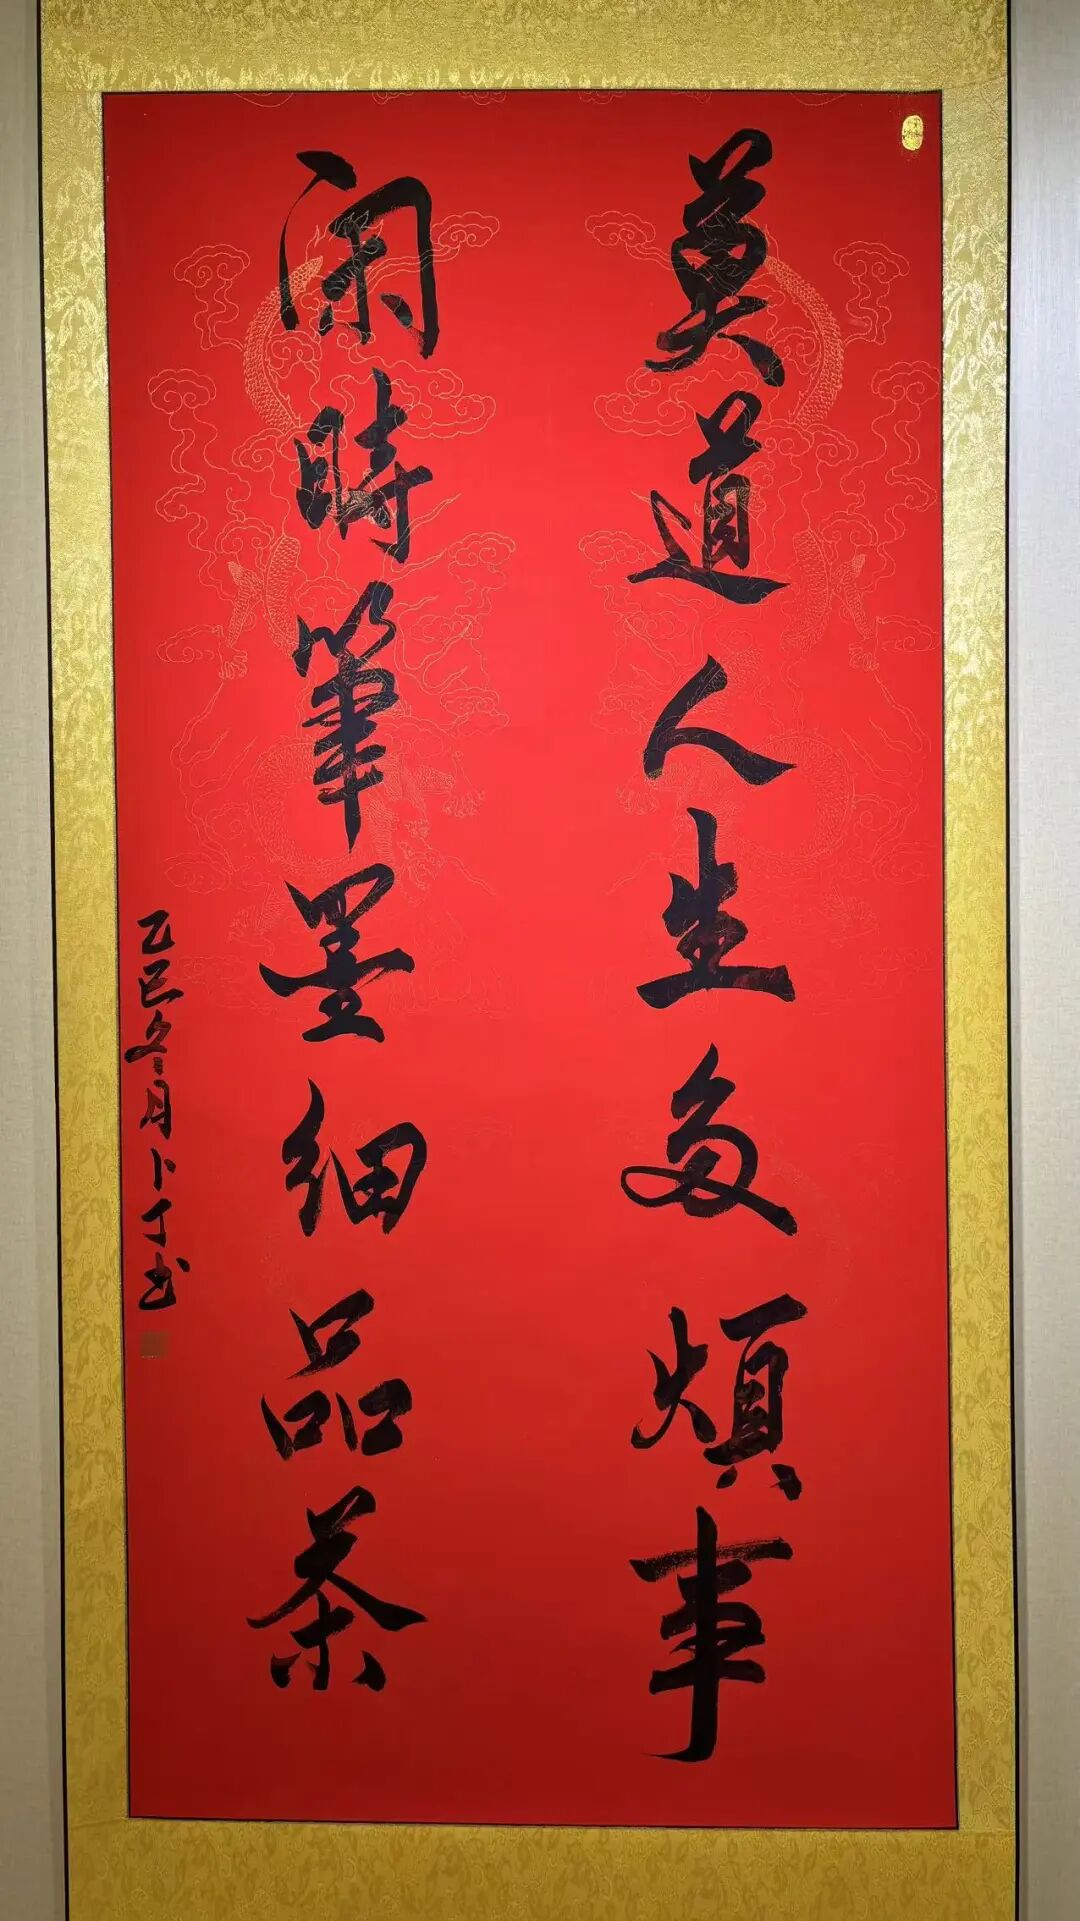 莫道人生多煩事
闲時筆墨細品茶
乙巳冬月卜丁书